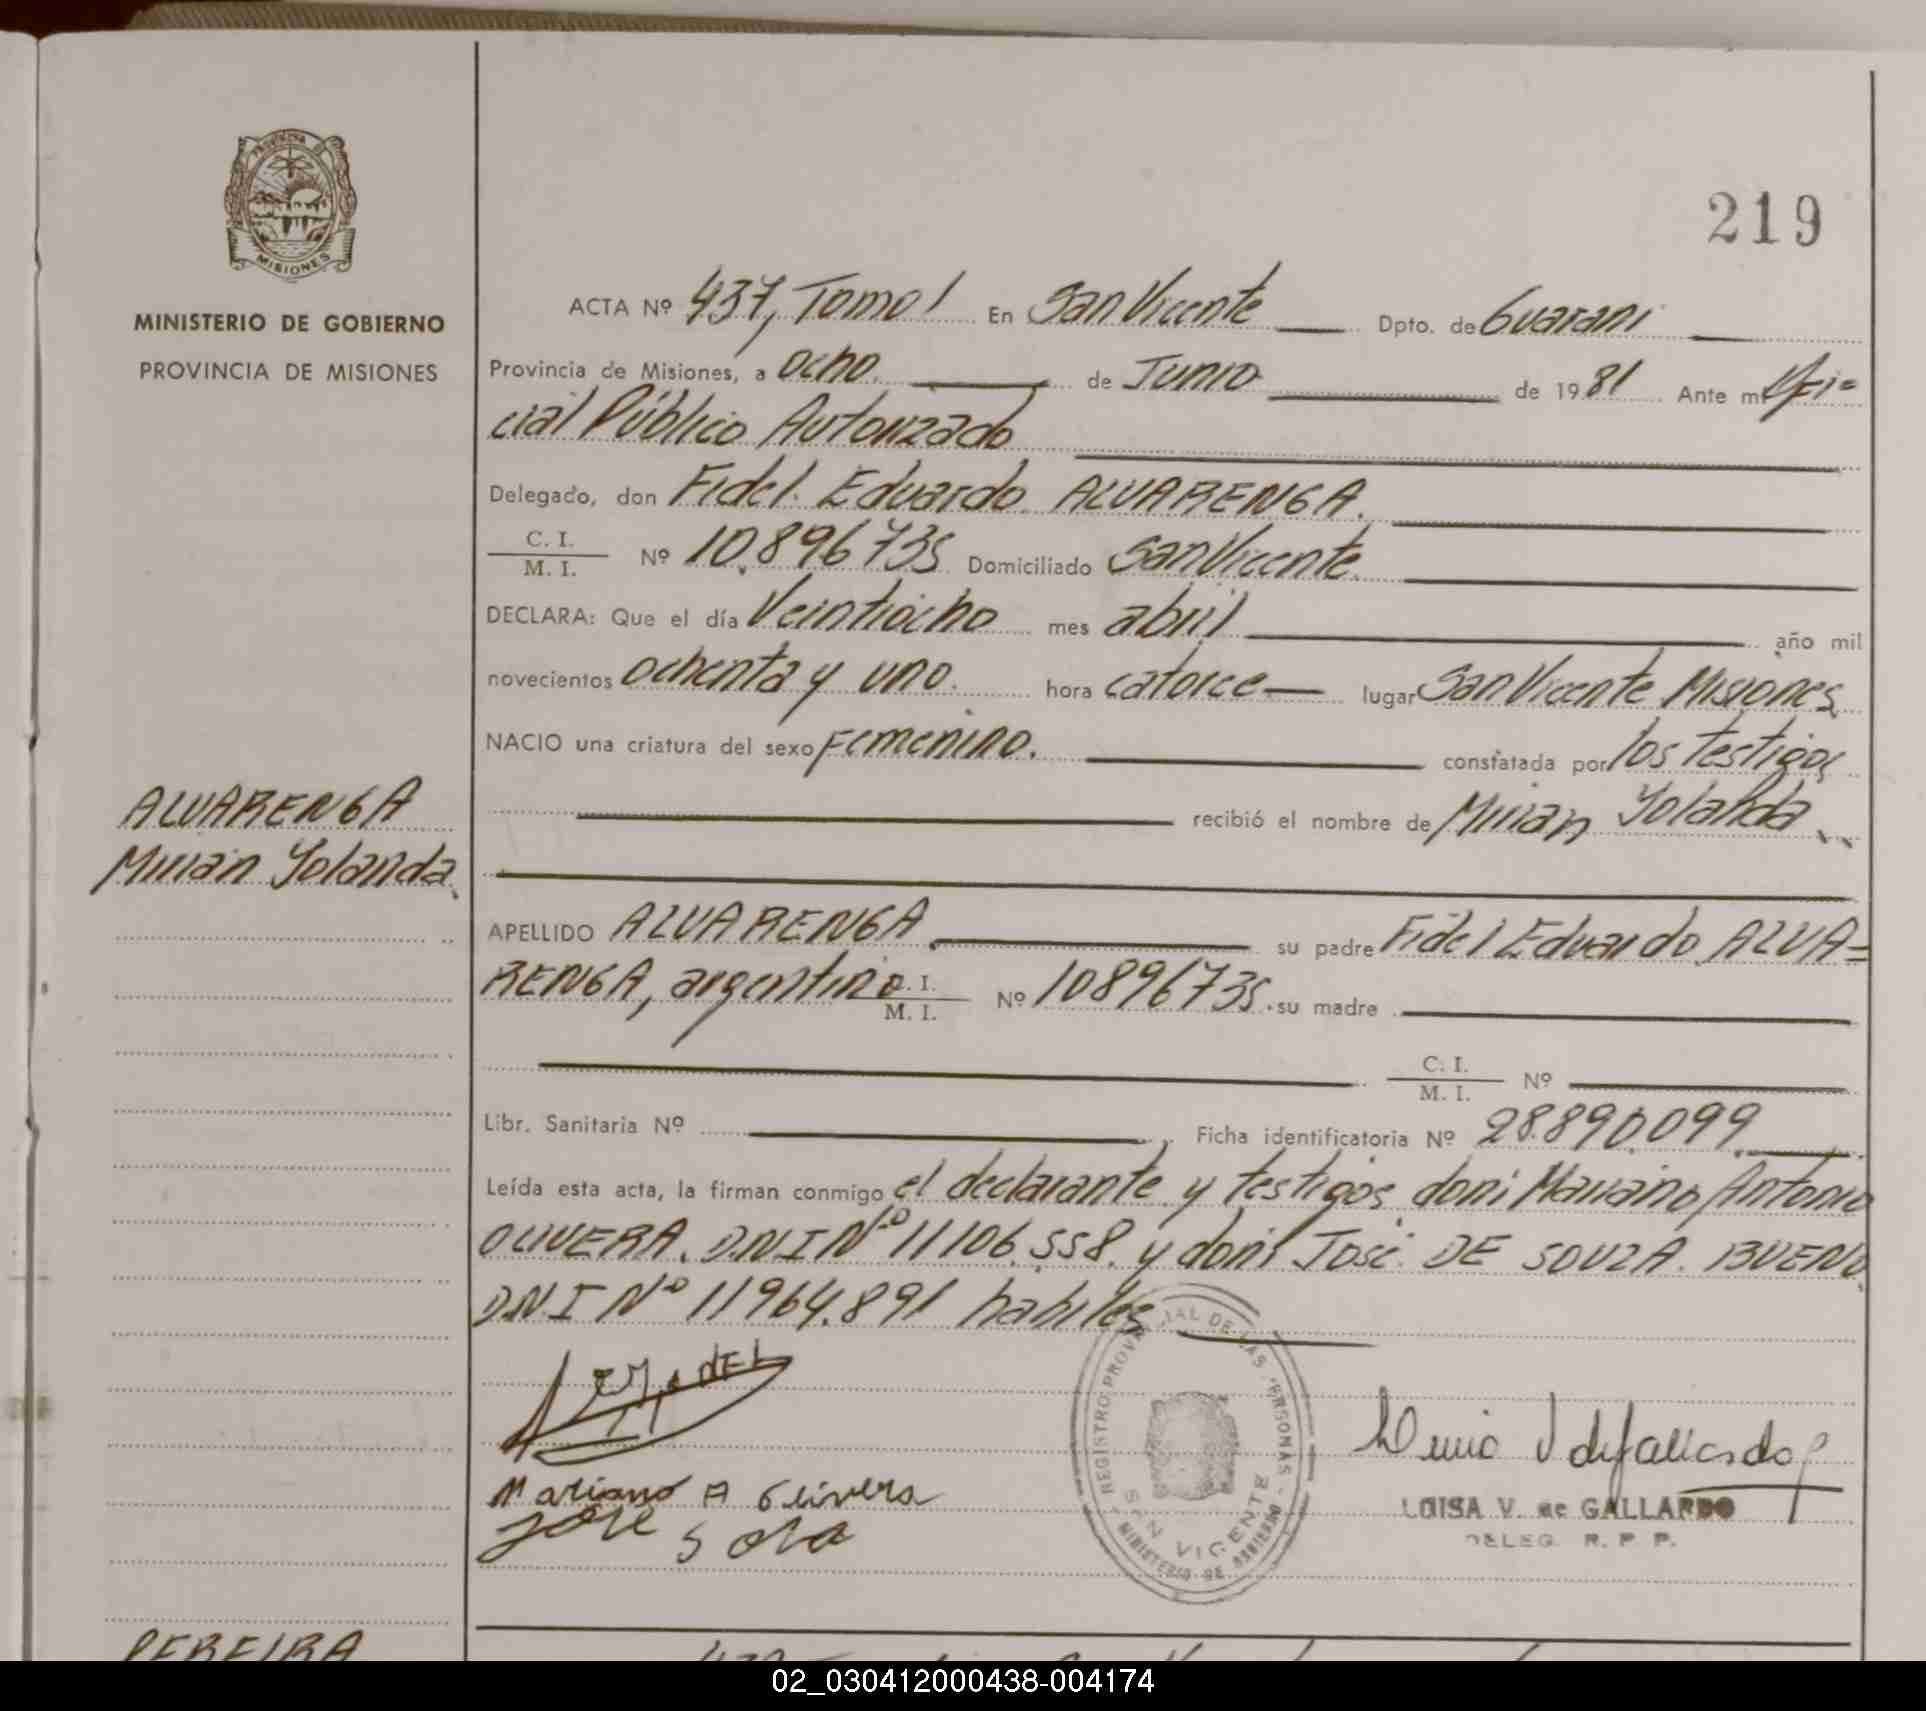 PROVINCIA
MISIONES
MINISTERIO DE GOBIERNO
PROVINCIA DE MISIONES
219
ACTA Nº 437, Tomo I En San Vicente Dpto. de Guarani
Provincia de Misiones, a ocho de Junio de 1981 Ante mi Ofi=
cial Público Autorizado
Delegado, don Fidel Eduardo ALVARENGA.
C. I.
M. I. Nº 10.896735 Domiciliado San Vicente
DECLARA: Que el día Veintiocho mes abril año mil
novecientos ochenta y uno. hora catorce lugar San Vicente Misiones
NACIO una criatura del sexo Femenino. constatada por los testigos
recibió el nombre de Mirian Yolanda
ALVARENGA
Mirian Yolanda
APELLIDO ALVARENGA su padre Fidel Eduardo ALVA=
RENGA, argentino C. I. M. I. Nº 10896735. su madre
C. I.
M. I. Nº
Libr. Sanitaria Nº Ficha identificatoria Nº 28.890.099
Leída esta acta, la firman conmigo el declarante y testigos don: Mariano Antonio
OLIVERA. D.N.I Nº 11106.558. y don: José DE SOUZA. BUENO
D.N.I Nº 11964.891 habiles
Mariano A Olivera
José Sosa
REGISTRO PROVINCIAL DE LAS PERSONAS
SAN VICENTE
MINISTERIO DE GOBIERNO
LUISA V. de GALLARDO
DELEG. R. P. P.
PEREIRA
02_030412000438-004174